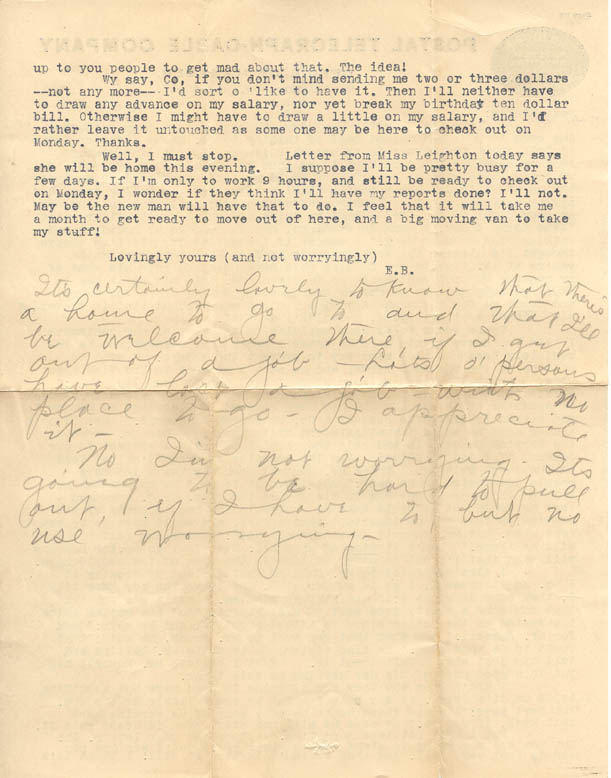 POSTAL TELEGRAPH-CABLE COMPANY
up to you people to get mad about that. The idea!
Wy say, Co, if you don't mind sending me two or three dollars
--not any more-- I'd sort o 'like to have it. Then I'll neither have
to draw any advance on my salary, nor yet break my birthday ten dollar
bill. Otherwise I might have to draw a little on my salary, and I'd
rather leave it untouched as some one may be here to check out on
Monday. Thanks.
Well, I must stop. Letter from Miss Leighton today says
she will be home this evening. I suppose I'll be pretty busy for a
few days. If I'm only to work 9 hours, and still be ready to check out
on Monday, I wonder if they think I'll have my reports done? I'll not.
May be the new man will have that to do. I feel that it will take me
a month to get ready to move out of here, and a big moving van to take
my stuff!
Lovingly yours (and not worryingly)
E.B.
Its certainly lovely to know that there's
a home to go to and that I'll
be welcome there, if I get
out of a job - Lots o' persons
have lost a job - with no
place to go - I appreciate
it -
No I'm not worrying. Its
going to be hard to pull
out, if I have to but no
use worrying -